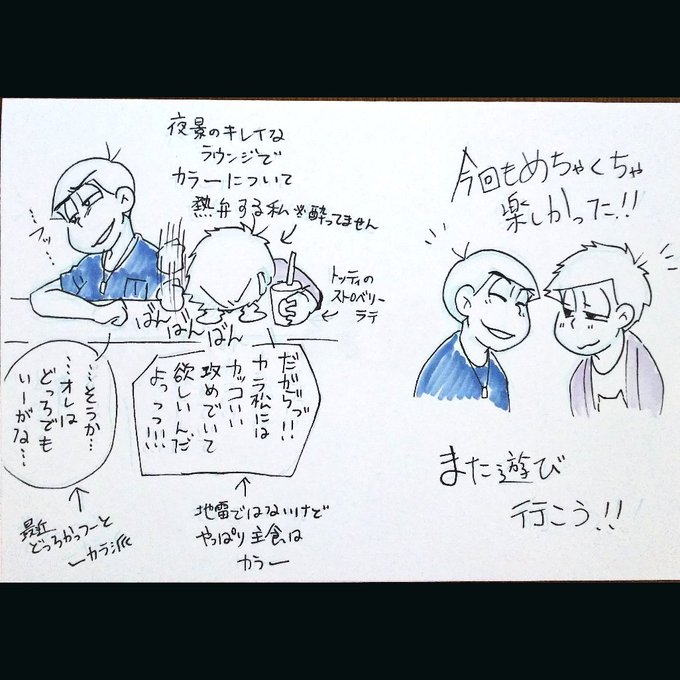 夜景のキレイな
ラウンジで
カラーについて
熱弁する私※酔ってません
…フッ…
トッティの
ストロベリー
ラテ
ばん
ばん
ばん
だがらっ"!!
カラ松には
カッコいい
攻めでいて
欲しいんだ
よっっっ!!!
…そうか…
…オレは
どっちでも
いーがな…
最近
どっちかっつーと
一カラ派
地雷ではないけど
やっぱり主食は
カラ一
今回もめちゃくちゃ
楽しかった!!
また遊び
行こう!!